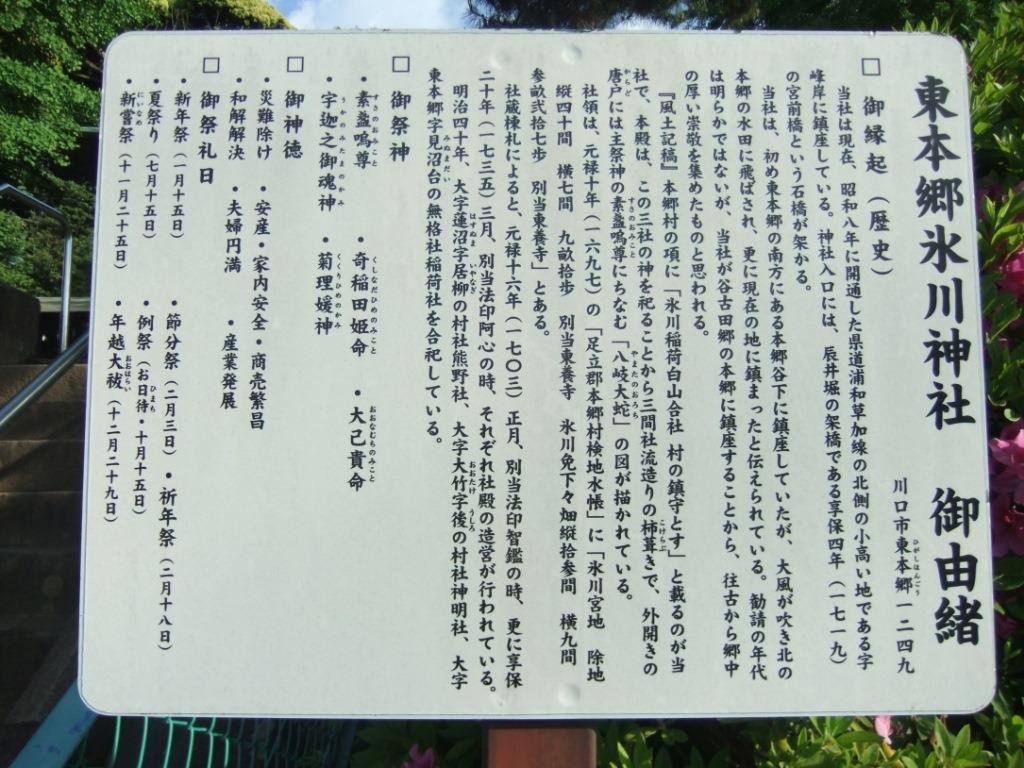 東本郷氷川神社 御由緒
川口市東本郷一二四九
□ 御縁起（歴史）
当社は現在、昭和八年に開通した県道浦和草加線の北側の小高い地である字
峰岸に鎮座している。神社入口には、辰井堀の架橋である享保四年（一七一九）
の宮前橋という石橋が架かる。
当社は、初め東本郷の南方にある本郷谷下に鎮座していたが、大風が吹き北の
本郷の水田に飛ばされ、更に現在の地に鎮まったと伝えられている。勧請の年代
は明らかではないが、当社が谷古田郷の本郷に鎮座することから、往古から郷中
の厚い崇敬を集めたものと思われる。
『風土記稿』本郷村の項に「氷川稲荷白山合社 村の鎮守とす」と載るのが当
社で、本殿は、この三社の神を祀ることから三間社流造りの杮葺きで、外開きの
唐戸には主祭神の素盞嗚尊にちなむ「八岐大蛇」の図が描かれている。
社領は、元禄十年（一六九七）の「足立郡本郷村検地水帳」に「氷川宮地 除地
縦四十間 横七間 九畝拾歩 別当東養寺 氷川免下々畑縦拾参間 横九間
参畝弐拾七歩 別当東養寺」とある。
社蔵棟札によると、元禄十六年（一七〇三）正月、別当法印智鑑の時、更に享保
二十年（一七三五）三月、別当法印阿心の時、それぞれ社殿の造営が行われている。
明治四十年、大字蓮沼字居柳の村社熊野社、大字大竹字後の村社神明社、大字
東本郷字見沼台の無格社稲荷社を合祀している。
□ 御祭神
・素盞嗚尊 ・奇稲田姫命 ・大己貴命
・宇迦之御魂神 ・菊理媛神
□ 御神徳
・災難除け ・安産・家内安全・商売繁昌
・和解解決 ・夫婦円満 ・産業発展
□ 御祭礼日
・新年祭（一月十五日） ・節分祭（二月三日）・祈年祭（二月十八日）
・夏祭り（七月十五日） ・例祭（お日待・十月十五日）
・新嘗祭（十一月二十五日） ・年越大祓（十二月二十九日）